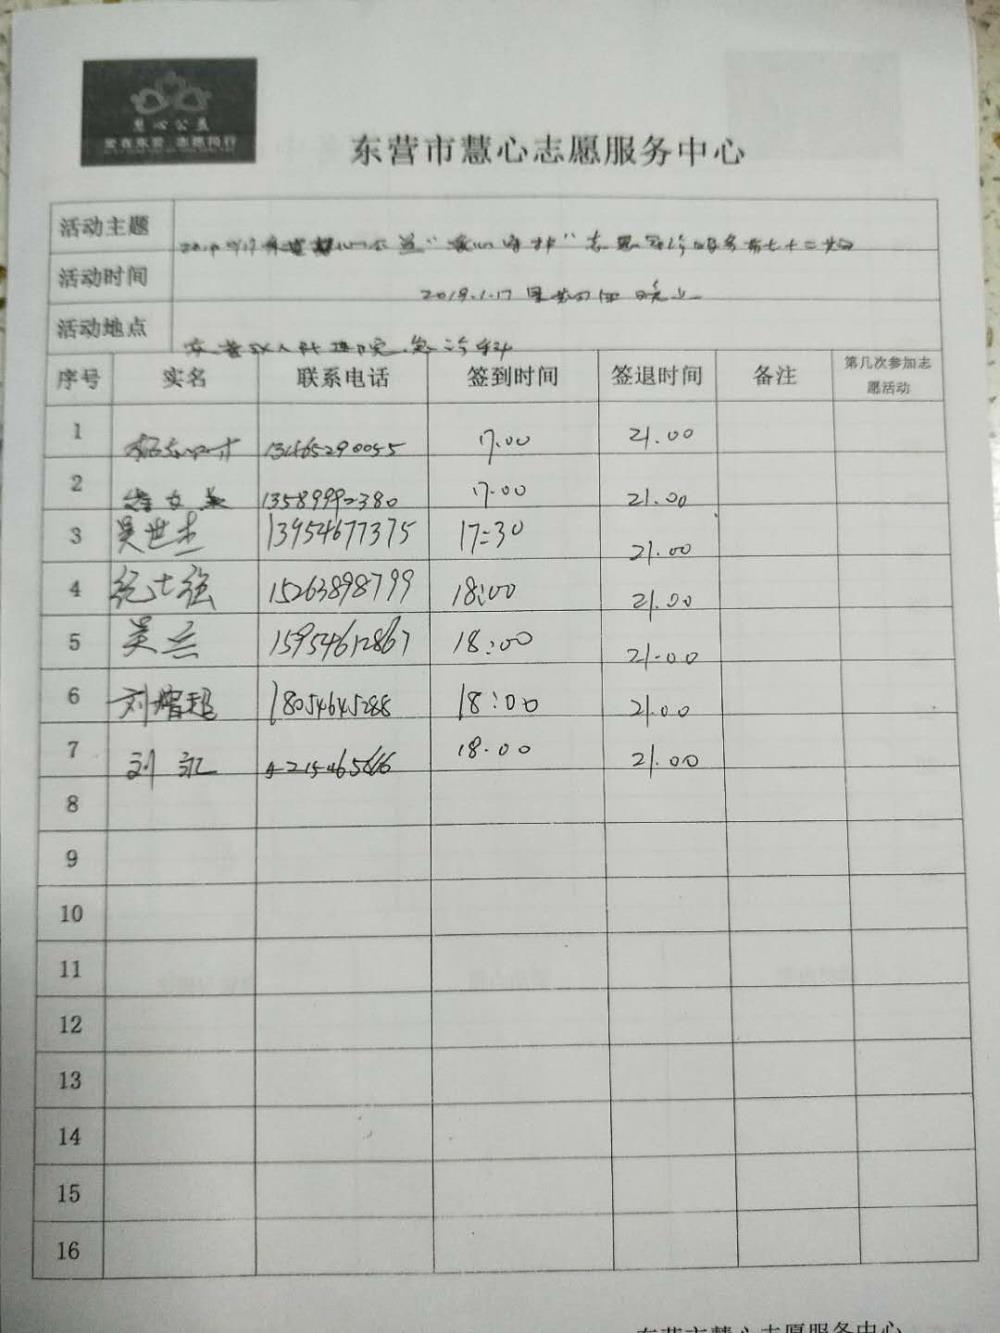 慧心公益
爱在东营 志愿同行
东营市慧心志愿服务中心
活动主题 "爱心守护"志愿 服务第七十二期
活动时间 2019.1.17 星期四 晚上
活动地点 东营 人民医院.急诊科
序号 实名 联系电话 签到时间 签退时间 备注 第几次参加志愿活动
1 13465290055 17.00 21.00
2 13589992380 17.00 21.00
3 吴世杰 13954677375 17:30 21.00
4 纪士强 15263898799 18:00 21.00
5 吴兵 15954612867 18:00 21.00
6 刘增超 18054645288 18:00 21.00
7 刘 18.00 21.00
8
9
10
11
12
13
14
15
16
东营市慧心志愿服务中心